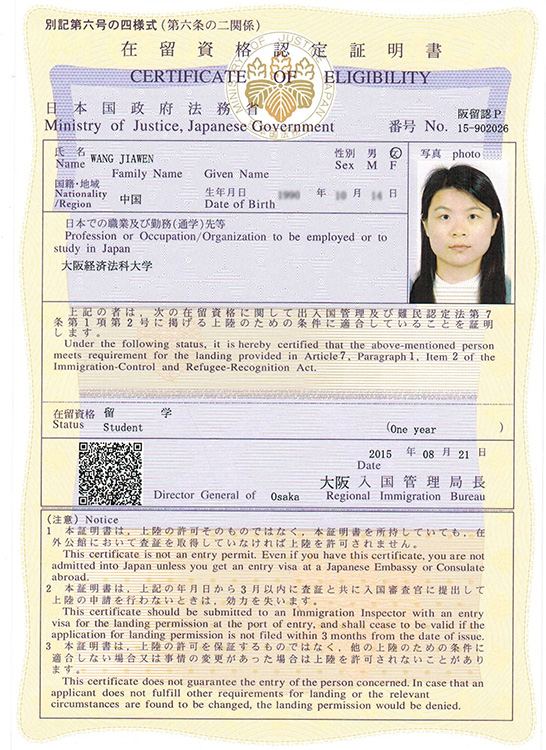 別記第六号の四様式（第六条の二関係）
在留資格認定証明書
CERTIFICATE OF ELIGIBILITY
日本国政府法務省
Ministry of Justice, Japanese Government
阪留認P
番号 No. 15-902026
氏名 WANG JIAWEN
Name
Family Name Given Name
性別 男 女
Sex M F
写真 photo
国籍・地域
Nationality
/Region
中国
生年月日 1990 年 10 月 14 日
Date of Birth
日本での職業及び勤務（通学）先等
Profession or Occupation/Organization to be employed or to
study in Japan
大阪経済法科大学
上記の者は，次の在留資格に関して出入国管理及び難民認定法第7
条第1項第2号に掲げる上陸のための条件に適合していることを証明
します。
Under the following status, it is hereby certified that the above-mentioned person
meets requirement for the landing provided in Article7, Paragraph1, Item 2 of the
Immigration-Control and Refugee-Recognition Act.
在留資格 留 学
Status Student
(One year )
2015 年 08 月 21 日
Date
大阪 入国管理局長
Director General of Osaka Regional Immigration Bureau
（注意）Notice
1 本証明書は，上陸の許可そのものではなく，本証明書を所持していても，在
外公館において査証を取得していなければ上陸を許可されません。
This certificate is not an entry permit. Even if you have this certificate, you are not
admitted into Japan unless you get an entry visa at a Japanese Embassy or Consulate
abroad.
2 本証明書は，上記の年月日から3月以内に査証と共に入国審査官に提出して
上陸の申請を行わないときは，効力を失います。
This certificate should be submitted to an Immigration Inspector with an entry
visa for the landing permission at the port of entry, and shall cease to be valid if the
application for landing permission is not filed within 3 months from the date of issue.
3 本証明書は，上陸の許可を保証するものではなく，他の上陸のための条件に
適合しない場合又は事情の変更があった場合は上陸を許可されないことがありま
す。
This certificate does not guarantee the entry of the person concerned. In case that an
applicant does not fulfill other requirements for landing or the relevant
circumstances are found to be changed, the landing permission would be denied.